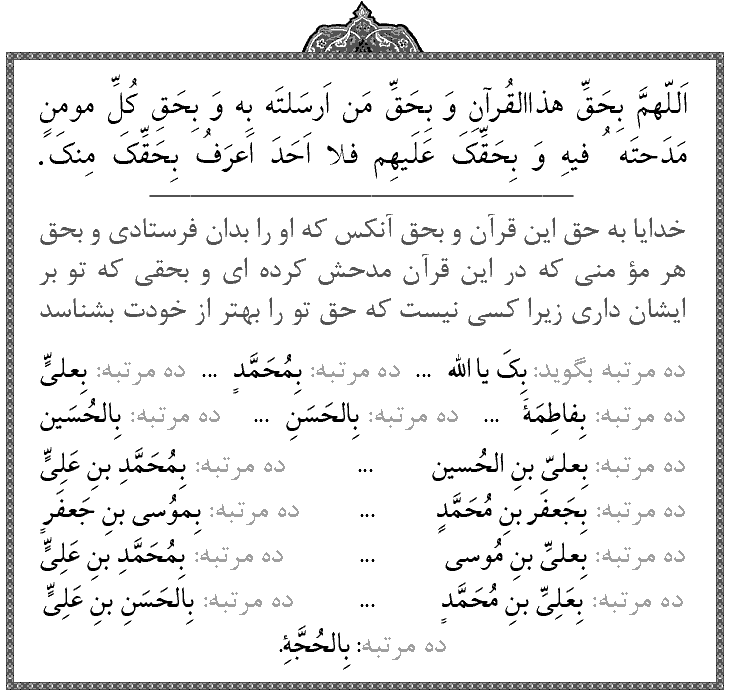 اَللّهمَّ بِحَقِّ هذاالقُرآنِ وَ بِحَقِّ مَن اَرسَلتَه بِه وَ بِحَقِ كُلِّ مومنٍ
مَدَحتَه ُ فيهِ وَ بِحَقِّكَ عَلَيهِم فلا اَحَدَ اَعرَفُ بِحَقِّكَ مِنكَ.
خدایا به حق این قرآن و بحق آنکس که او را بدان فرستادی و بحق
هر مؤ منی که در این قرآن مدحش کرده ای و بحقی که تو بر
ایشان داری زیرا کسی نیست که حق تو را بهتر از خودت بشناسد
ده مرتبه بگوید: بِکَ یا الله ... ده مرتبه: بِمُحَمَّدٍ ... ده مرتبه: بِعلیٍّ
ده مرتبه: بِفاطِمَةَ ... ده مرتبه: بِالحَسَنِ ... ده مرتبه: بِالحُسَین
ده مرتبه: بِعلیّ بنِ الحُسین ... ده مرتبه: بِمُحَمَّدِ بنِ عَلِیٍّ
ده مرتبه: بِجَعفَر بنِ مُحَمَّدٍ ... ده مرتبه: بِموُسی بنِ جَعفَرٍ
ده مرتبه: بِعلیِّ بنِ مُوسی ... ده مرتبه: بِمُحَمَّدِ بنِ عَلِیٍّ
ده مرتبه: بِعَلِیِّ بنِ مُحَمَّدٍ ... ده مرتبه: بِالحَسَنِ بنِ عَلِیٍّ
ده مرتبه: بِالحُجَّةِ.